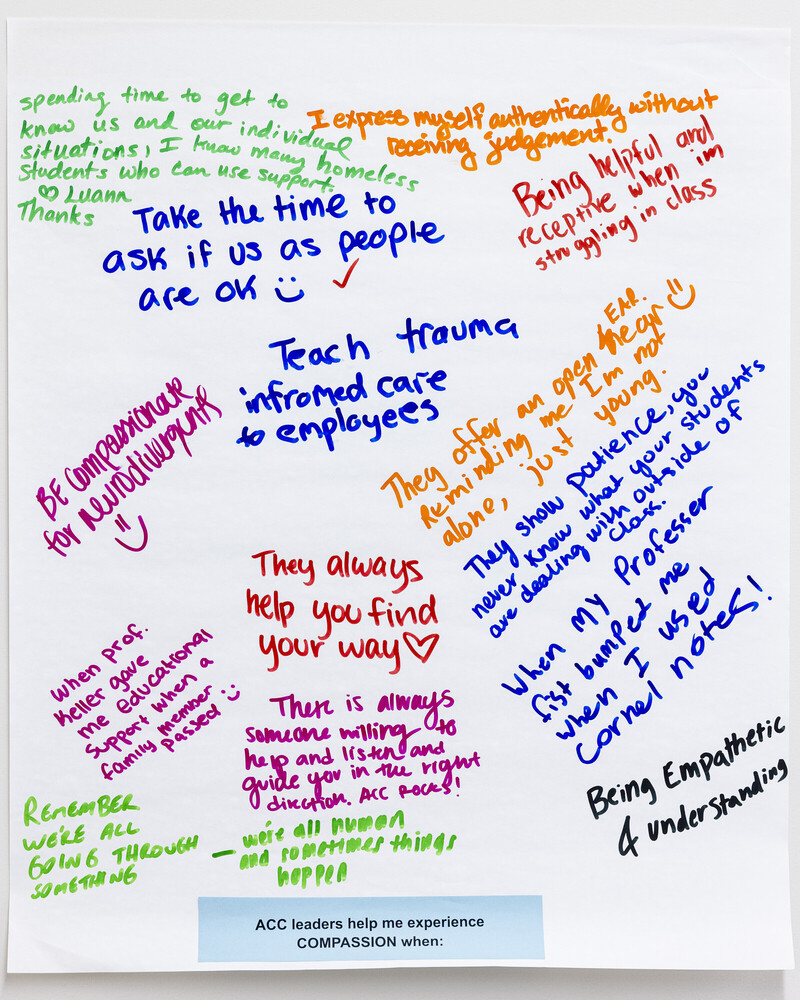 spending time to get to
know us and our individual
situations, I know many homeless
students who can use support.
♡ Luann
Thanks
I express myself authentically without
receiving judgement.
Being helpful and
receptive when im
struggling in class
Take the time to
ask if us as people
are ok ✓
Teach trauma
infromed care
to employees
EAR.
They offer an open hear
Reminding me I'm not
alone, just young.
BE Compassionate
for Neurodivergents
They show patience, you
never know what your students
are dealing with outside of
class.
They always
help you find
your way ♡
When my Professor
fist bumped me
when I used
cornel notes!
when prof.
Keller gave
me educational
support when a
family member
passed
There is always
someone willing to
help and listen and
guide you in the right
direction. ACC ROCKS!
Being Empathetic
& understanding
REMEMBER
WE'RE ALL
GOING THROUGH
SOMETHING
– we're all human
and sometimes things
happen
ACC leaders help me experience
COMPASSION when: